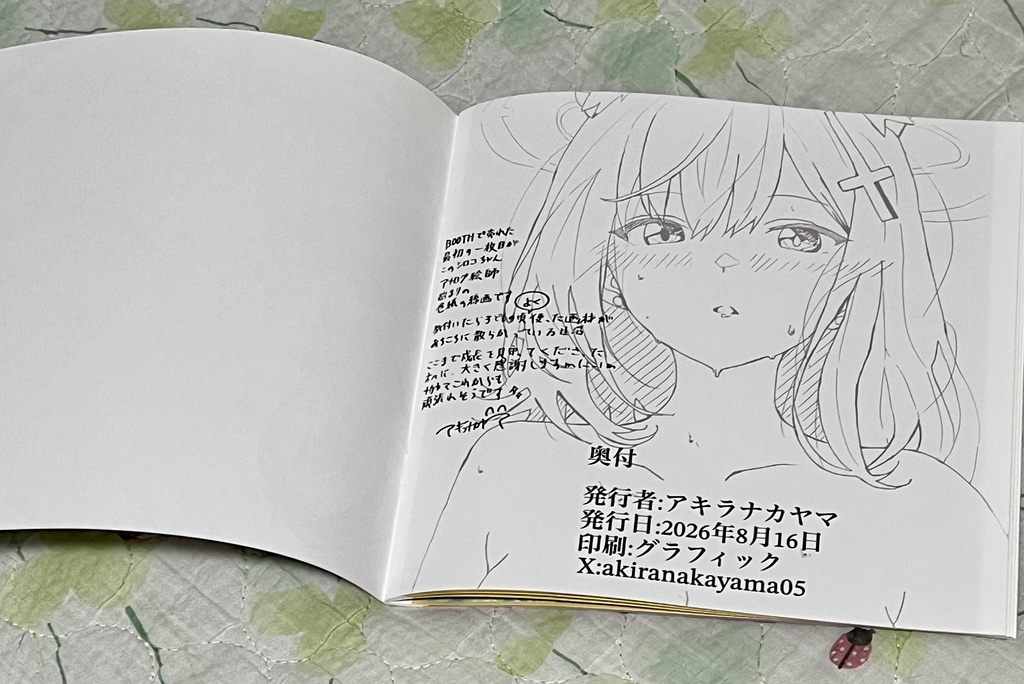 BOOTHで売れた
最初の一枚目が
このシロコちゃん
アナログ絵師
始まりの
色紙の線画です
よく
気付いたら子どもの頃使った画材が
あちこちに散らかっている生活
ここまで成長を見守ってくださった
大きく感謝します
これからも
頑張れそうです
アキラナカヤマ
奥付
発行者:アキラナカヤマ
発行日:2026年8月16日
印刷:グラフィック
X:akiranakayama05